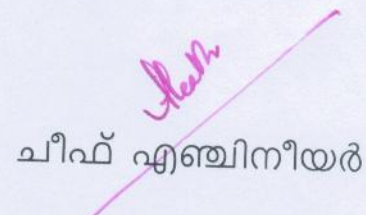 ചീഫ് എഞ്ചിനീയർ